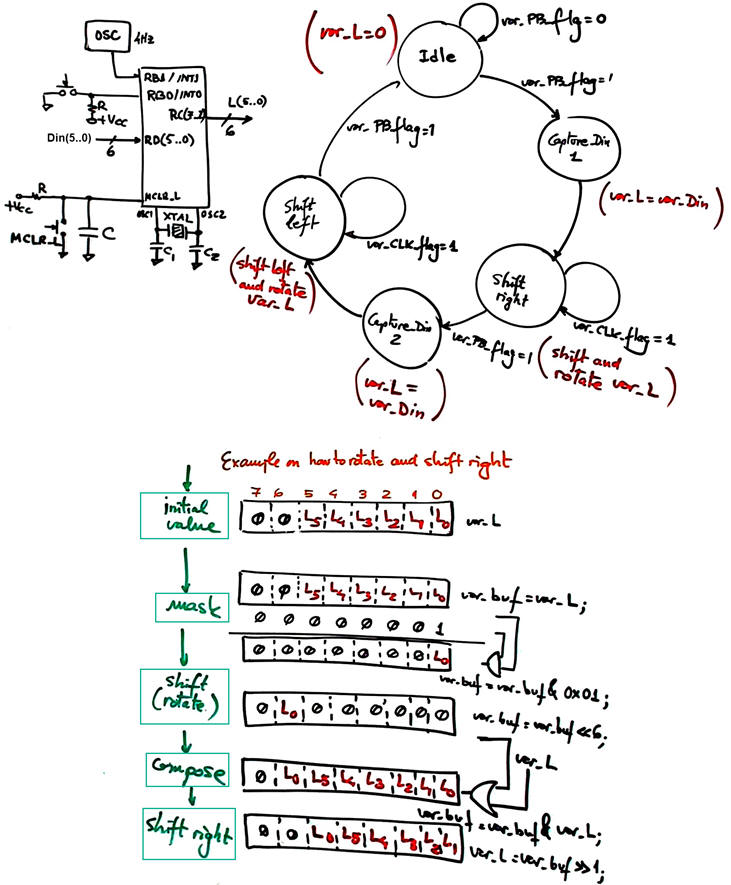 OSC
4Hz
RB1 / INT1
RB0/INT0
R
+Vcc
L(5..0)
6
Din(5..0)
6
RD(5..0)
R
+Vcc
MCLR_L
OSC1
XTAL
OSC2
MCLR_L
C
C1
C2
(var_L=0)
var_PB_flg=0
Idle
var_PB_flag=1
var_PB_flag=1
Capture_Din
1
(var_L=var_Din)
Shift
left
var_CLK_flag=1
(shift left
and rotate
var_L)
Shift
right
var_CLK_flag=1
Capture_Din
2
var_PB_flag=1
(shift and
rotate var_L)
(var_L=
var_Din)
Example on how to rotate and shift right
7 6 5 4 3 2 1 0
initial
value
0 0 L5 L4 L3 L2 L1 L0
var_L
mask
0 0 L5 L4 L3 L2 L1 L0
var_buf=var_L;
0 0 0 0 0 0 0 1
0 0 0 0 0 0 0 L0
var_buf=var_buf & 0x01;
shift
(rotate)
0 L0 0 0 0 0 0 0
var_buf=var_buf<<6;
var_L
compose
0 L0 L5 L4 L3 L2 L1 L0
var_buf=var_buf & var_L;
shift right
0 0 L0 L5 L4 L3 L2 L1
var_L=var_buf>>1;